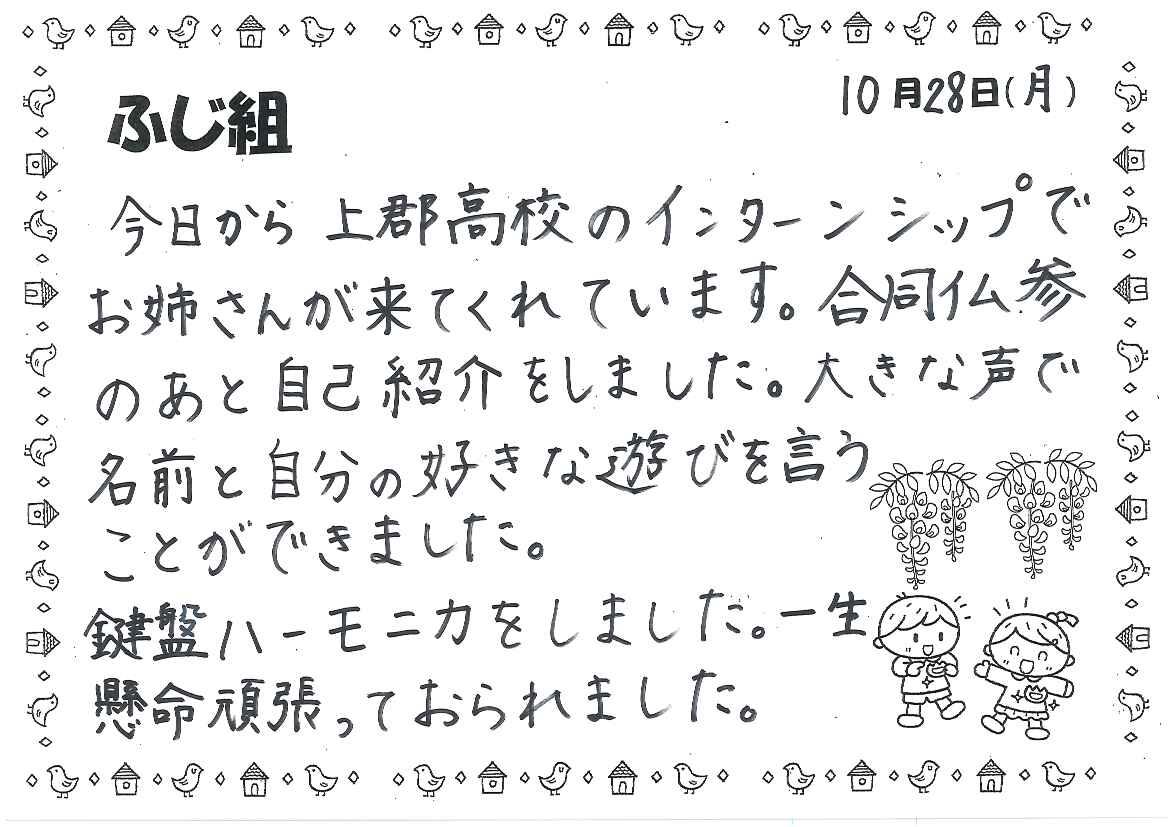 ふじ組
10月28日(月)
今日から上郡高校のインターンシップで
お姉さんが来てくれています。合同仏参
のあと自己紹介をしました。大きな声で
名前と自分の好きな遊びを言う
ことができました。
鍵盤ハーモニカをしました。一生
懸命頑張っておられました。